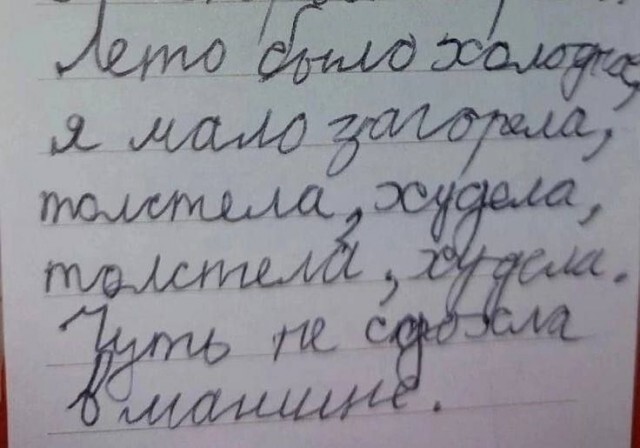 Лето было холодное,
я мало загорела,
толстела, худела,
толстела, худела.
Чуть не сдохла
в машине.